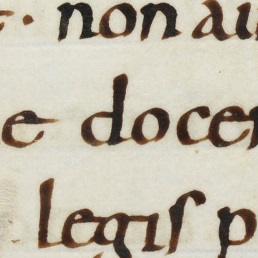 · non au
e docer
legis p